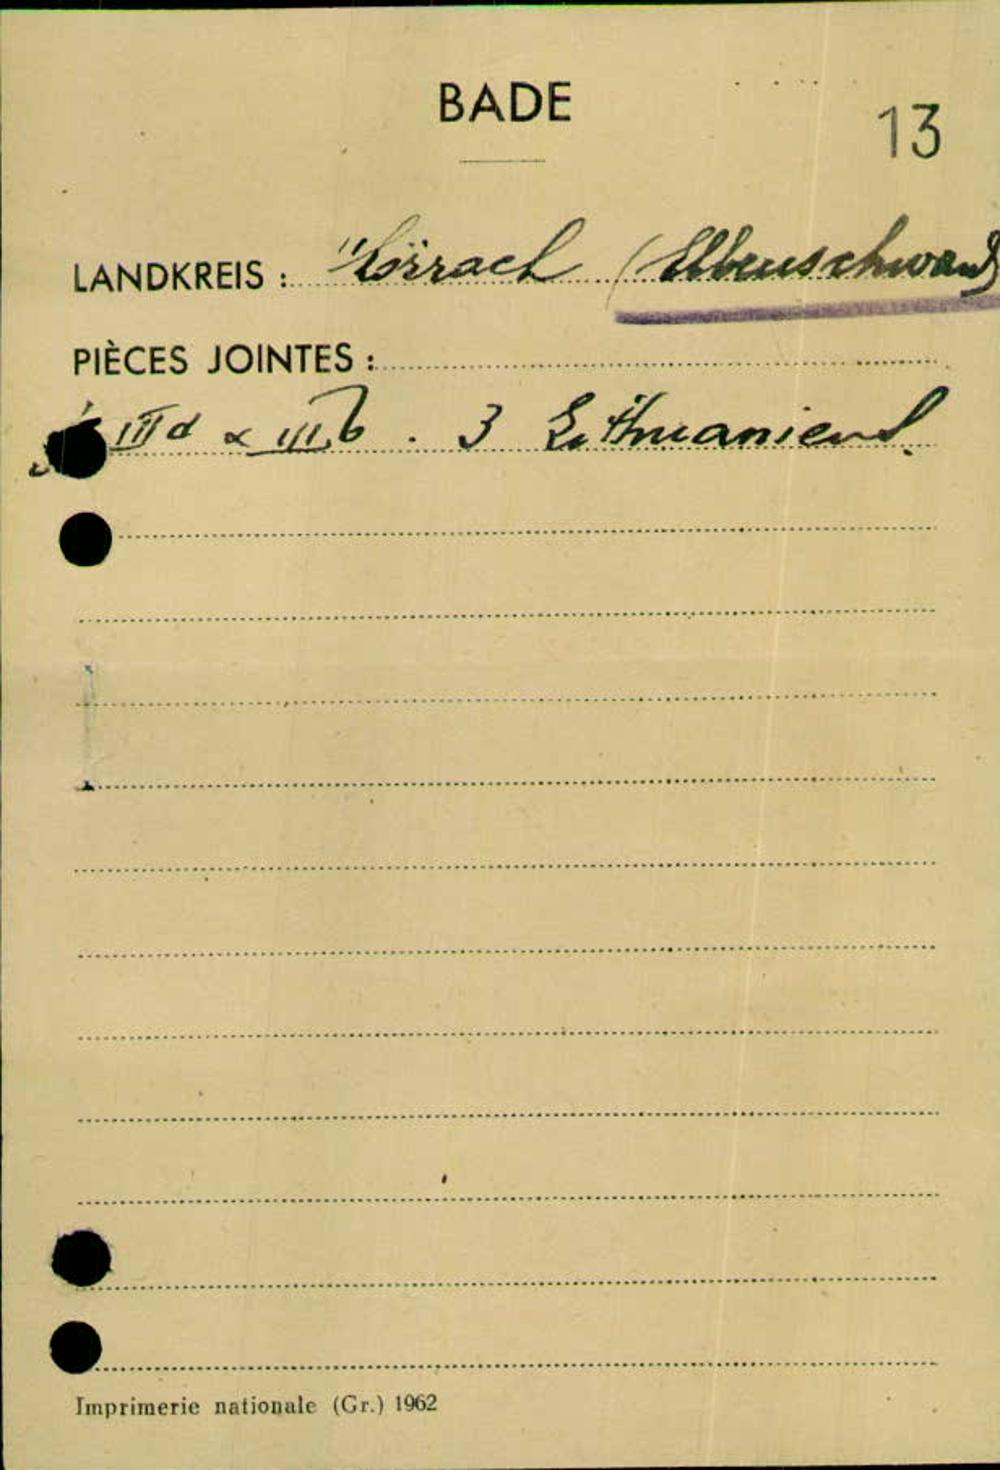 BADE
13
LANDKREIS : "Lörrach (Elbenschwand)
PIÈCES JOINTES :
IIId & IIIb . 3 Lithuaniens.
Imprimerie nationale (Gr.) 1962